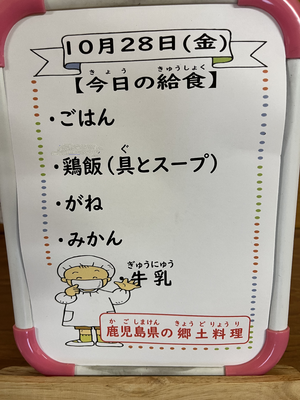 10月28日(金)
【今日の給食】
きょう きゅうしょく
・ごはん
・鶏飯(具とスープ)
ぐ
・がね
・みかん
ぎゅうにゅう
・牛乳
かごしまけん きょうどりょうり
鹿児島県の郷土料理